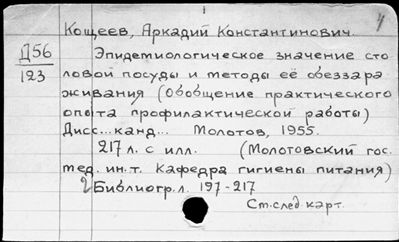 Кощеев, Аркадий Константинович.
Д56
123
Эпидемиологическое значение сто
ловой посуды и методы её обеззара
живания (Обобщение практического
опыта профилактической работы)
Дисс...канд... Молотов, 1955.
217 л. с илл. (Молотовский гос.
мед. ин.т. Кафедра гигиены питания)
Библиогр.л. 197-217
См.след карт.